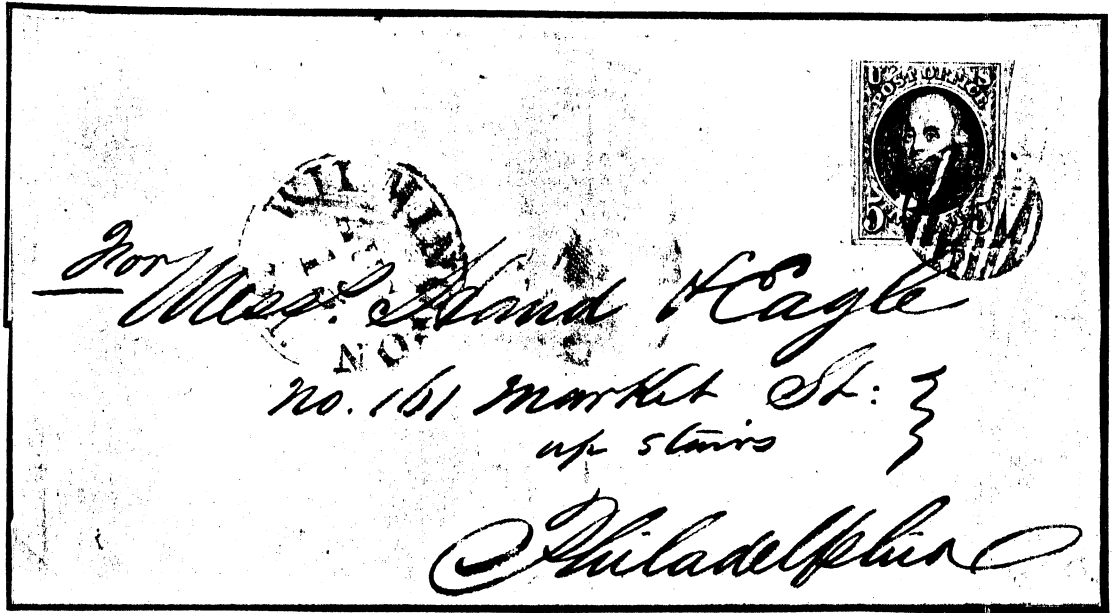 U S
POST OFFICE
5 5
WILMINGTON
For
Mess. Hand & Eagle
No. 161 Market St:
up stairs
Philadelphia